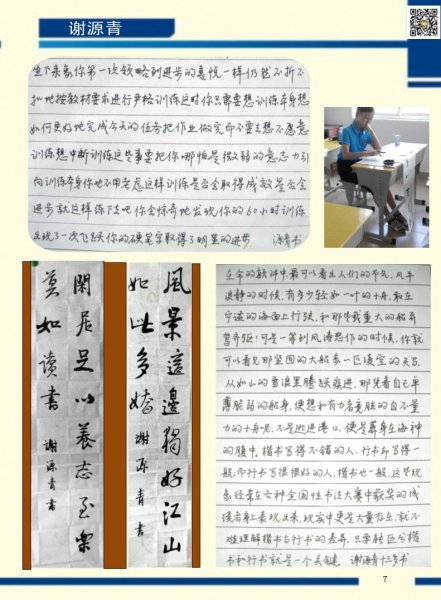 谢源青
坐下来象你第一次领略到进步的喜悦一样仍然不折不
扣地按教材要求进行严格训练这时你只需要想训练本身想
如何更好地完成今天的任务把作业做完而不要去想不愿意
训练想中断训练这些事要把你哪怕是微弱的意志力引
向训练本身你也不用考虑这样训练是否会取得成效是否会
进步就这样练下去吧你会惊奇地发现你的60小时训练
出现了一次飞跃你的硬笔字取得了明显的进步 源青书
風景這邊獨好江山
如此多嬌 谢源青书
閑居足以養志至樂
莫如读書 谢源青書
生命的航师中最可以看出人们的平气,风平
浪静的时候,有多少轻如一叶的小舟,敢在
宁谧的海面上行驶,和那些载重大的船并
驾齐驱!可是一等到风涛怒作的时候,你就
可以看见那坚固的大船象一匹凌空的天马,
从如山的雪浪里腾跃疾进,那凭着自己单
薄脆弱的船身,便想和有力者竞胜的自不量
力的小舟呢,不是逃进港口,便是葬身在海神
的腹中,楷书写得不错的人,行书却写得一
般;而行书写很很好的人,楷书也一般,这些现
象经常在六种全国性书法大赛中获奖的成
绩者身上表现出来,现实中更是大量存在,就不
难理解楷书与行书的差异,只要转区分楷
书和行书就是一个关键. 谢海青十三岁书
7